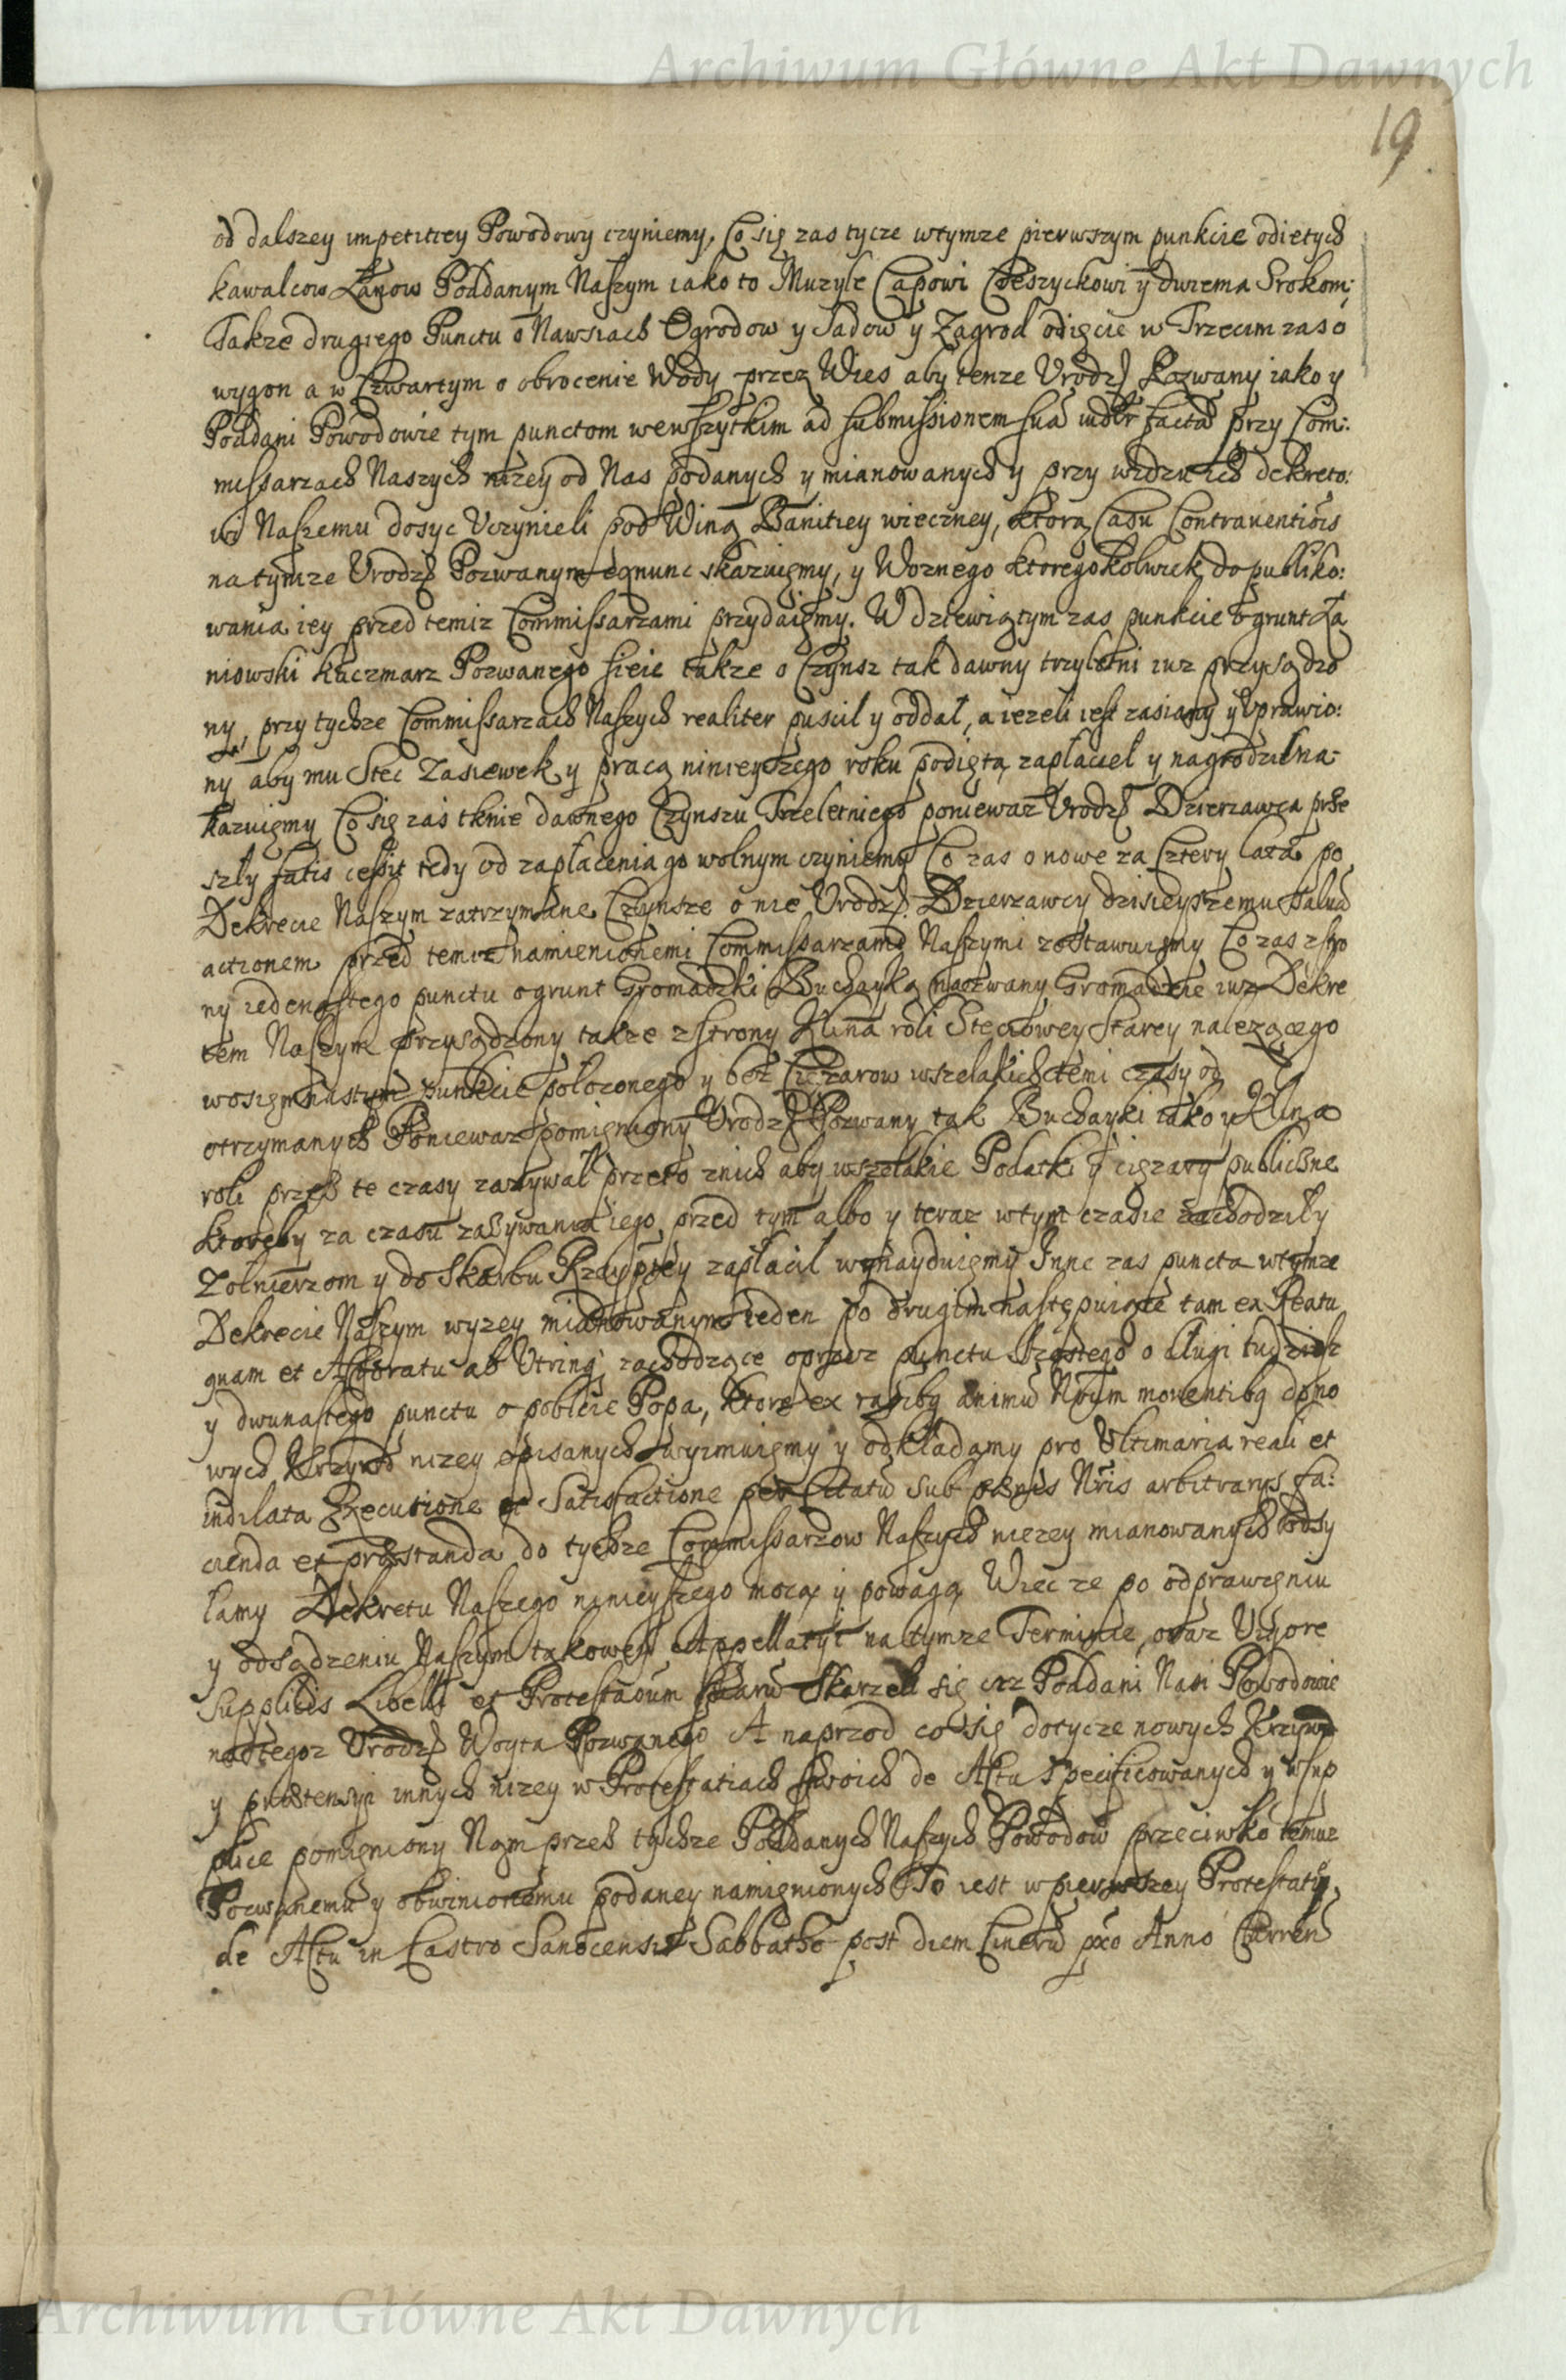 Archiwum Główne Akt Dawnych
19
od dalszey impetitiey Powodowy czyniemy, Co się zas tycze wtymze pierwszym punkcie odietych
kawalcow Łanow Poddanym Naszym iako to Muzyle Capowi Cieszyckowi y dwiema Srokom;
Takze drugiego Punctu o Nawsiach Ogrodow y Sadow y Zagrod odięcie w Trzecim zas o
wygon a w Czwartym o obrocenie Wody przez Wies aby tenze Vrodz Pozwany iako y
Poddani Powodowie tym punctom wewszytkim ad submissionem sua factã przy Com:
missarzach Naszych nizey od Nas podanych y mianowanych y przy widzu ich dekreto:
wi Naszemu dosyc Vczynieli pod Winą Banitiey wieczney, ktorą Casu Contrauentiois
na tymze Vrodz Pozwanym eqnunc skazuięmy, y Woznego ktoregokolwiek do publiko:
wania iey przed temiz Commissarzami przydaięmy. W dziewiątym zas punkcie o grunt Ła
niowski kaczmarz Pozwanego sieie takze o Czynsz tak dawny trzyletni iuz przysądzo
ny, przy tychze Commissarzach Naszych realiter puscil y oddał, a iezeli iest zasiany y vprawio:
ny aby mu Stec Zasiewek y pracą ninieyszego roku podiętą zaplaciel y nagrodzil na:
kazuięmy Co się zas tknie dawnego Czynszu Trzeletniego poniewaz Vrodz Dzierzawca prze
szły fatis cessit tedy od zapłacenia go wolnym czyniemy Co zas o nowe za Cztery lata po
Dekrecie Naszym zatrzymane Czynsze o nie Vrodz Dzierzawcy dzisieyszemu saluã
actionem przed temiz namienionemi Commissarzami Naszymi zostawuięmy Co zas zstro
ny iedenastego punctu o grunt Gromadzki Buchayką nazwany Gromadzie iuz Dekre
tem Naszym przysądzony takze zstrony Klina roli Steciowey Starey nalezącego
wosięmnastym punkcie polozonego y bez Cięzarow wszelakich temi czasy od
otrzymanych Poniewaz pomięniony Vrodz Pozwany tak Buchayki iako y Klina
roli przez te czasy zazywal przeto znich aby wszelakie Podatki y cięzary publiczne
ktoreby za czasu zazywania iego przed tym albo y teraz wtym czasie zachodziły
Zolnierzom y do Skarbu Rzeyptey zaplacil wynayduięmy Inne zas puncta wtymze
Dekrecie Naszym wyzey mianowanym ieden po drugim następuiące tam ex Reatu
quam et ab Vtrinq zachodzące oprocz punctu Szostego o dlugi tudziesz
y dwunastego punctu o pobicie Popa, ktore ex ratibq animũ Nrum mouentibq dono
wych Krzywd nizey opisanych wyimuięmy y odkladamy pro Vltimaria reali et
indilata Executione et Satisfactione per Citatũ sub poenis Nris arbitrarys fa:
cienda et præstanda do tychze Commissarzow Naszych niezey mianowanych odsy
lamy Dekretu Naszego ninieyszego mocą y powagą Wiec ze po odprawieniu
y odsądzeniu Naszym takowey Appellatyi na tymze Terminie, oraz Vigore
Supplicis Libelli et Protestaoum Skarzeli się ciz Poddani Nasi Powodowie
na tegoz Vrodz Woyta Pozwanego A naprzod co się dotycze nowych Krzywd
y prætensyi innych nizey w Protestatiach swoich de Actu specificowanych y wsup
plice pomięniony Nam przez tychze Poddanych Naszych Powodow przeciwko temuz
Pozwanemu y obwinionemu podaney namięnionych To iest w pierwszey Protestatij,
de Actu in Castro Sanocensi Sabbatho post diem Cinerũ pxo Anno Currenti
Archiwum Główne Akt Dawnych